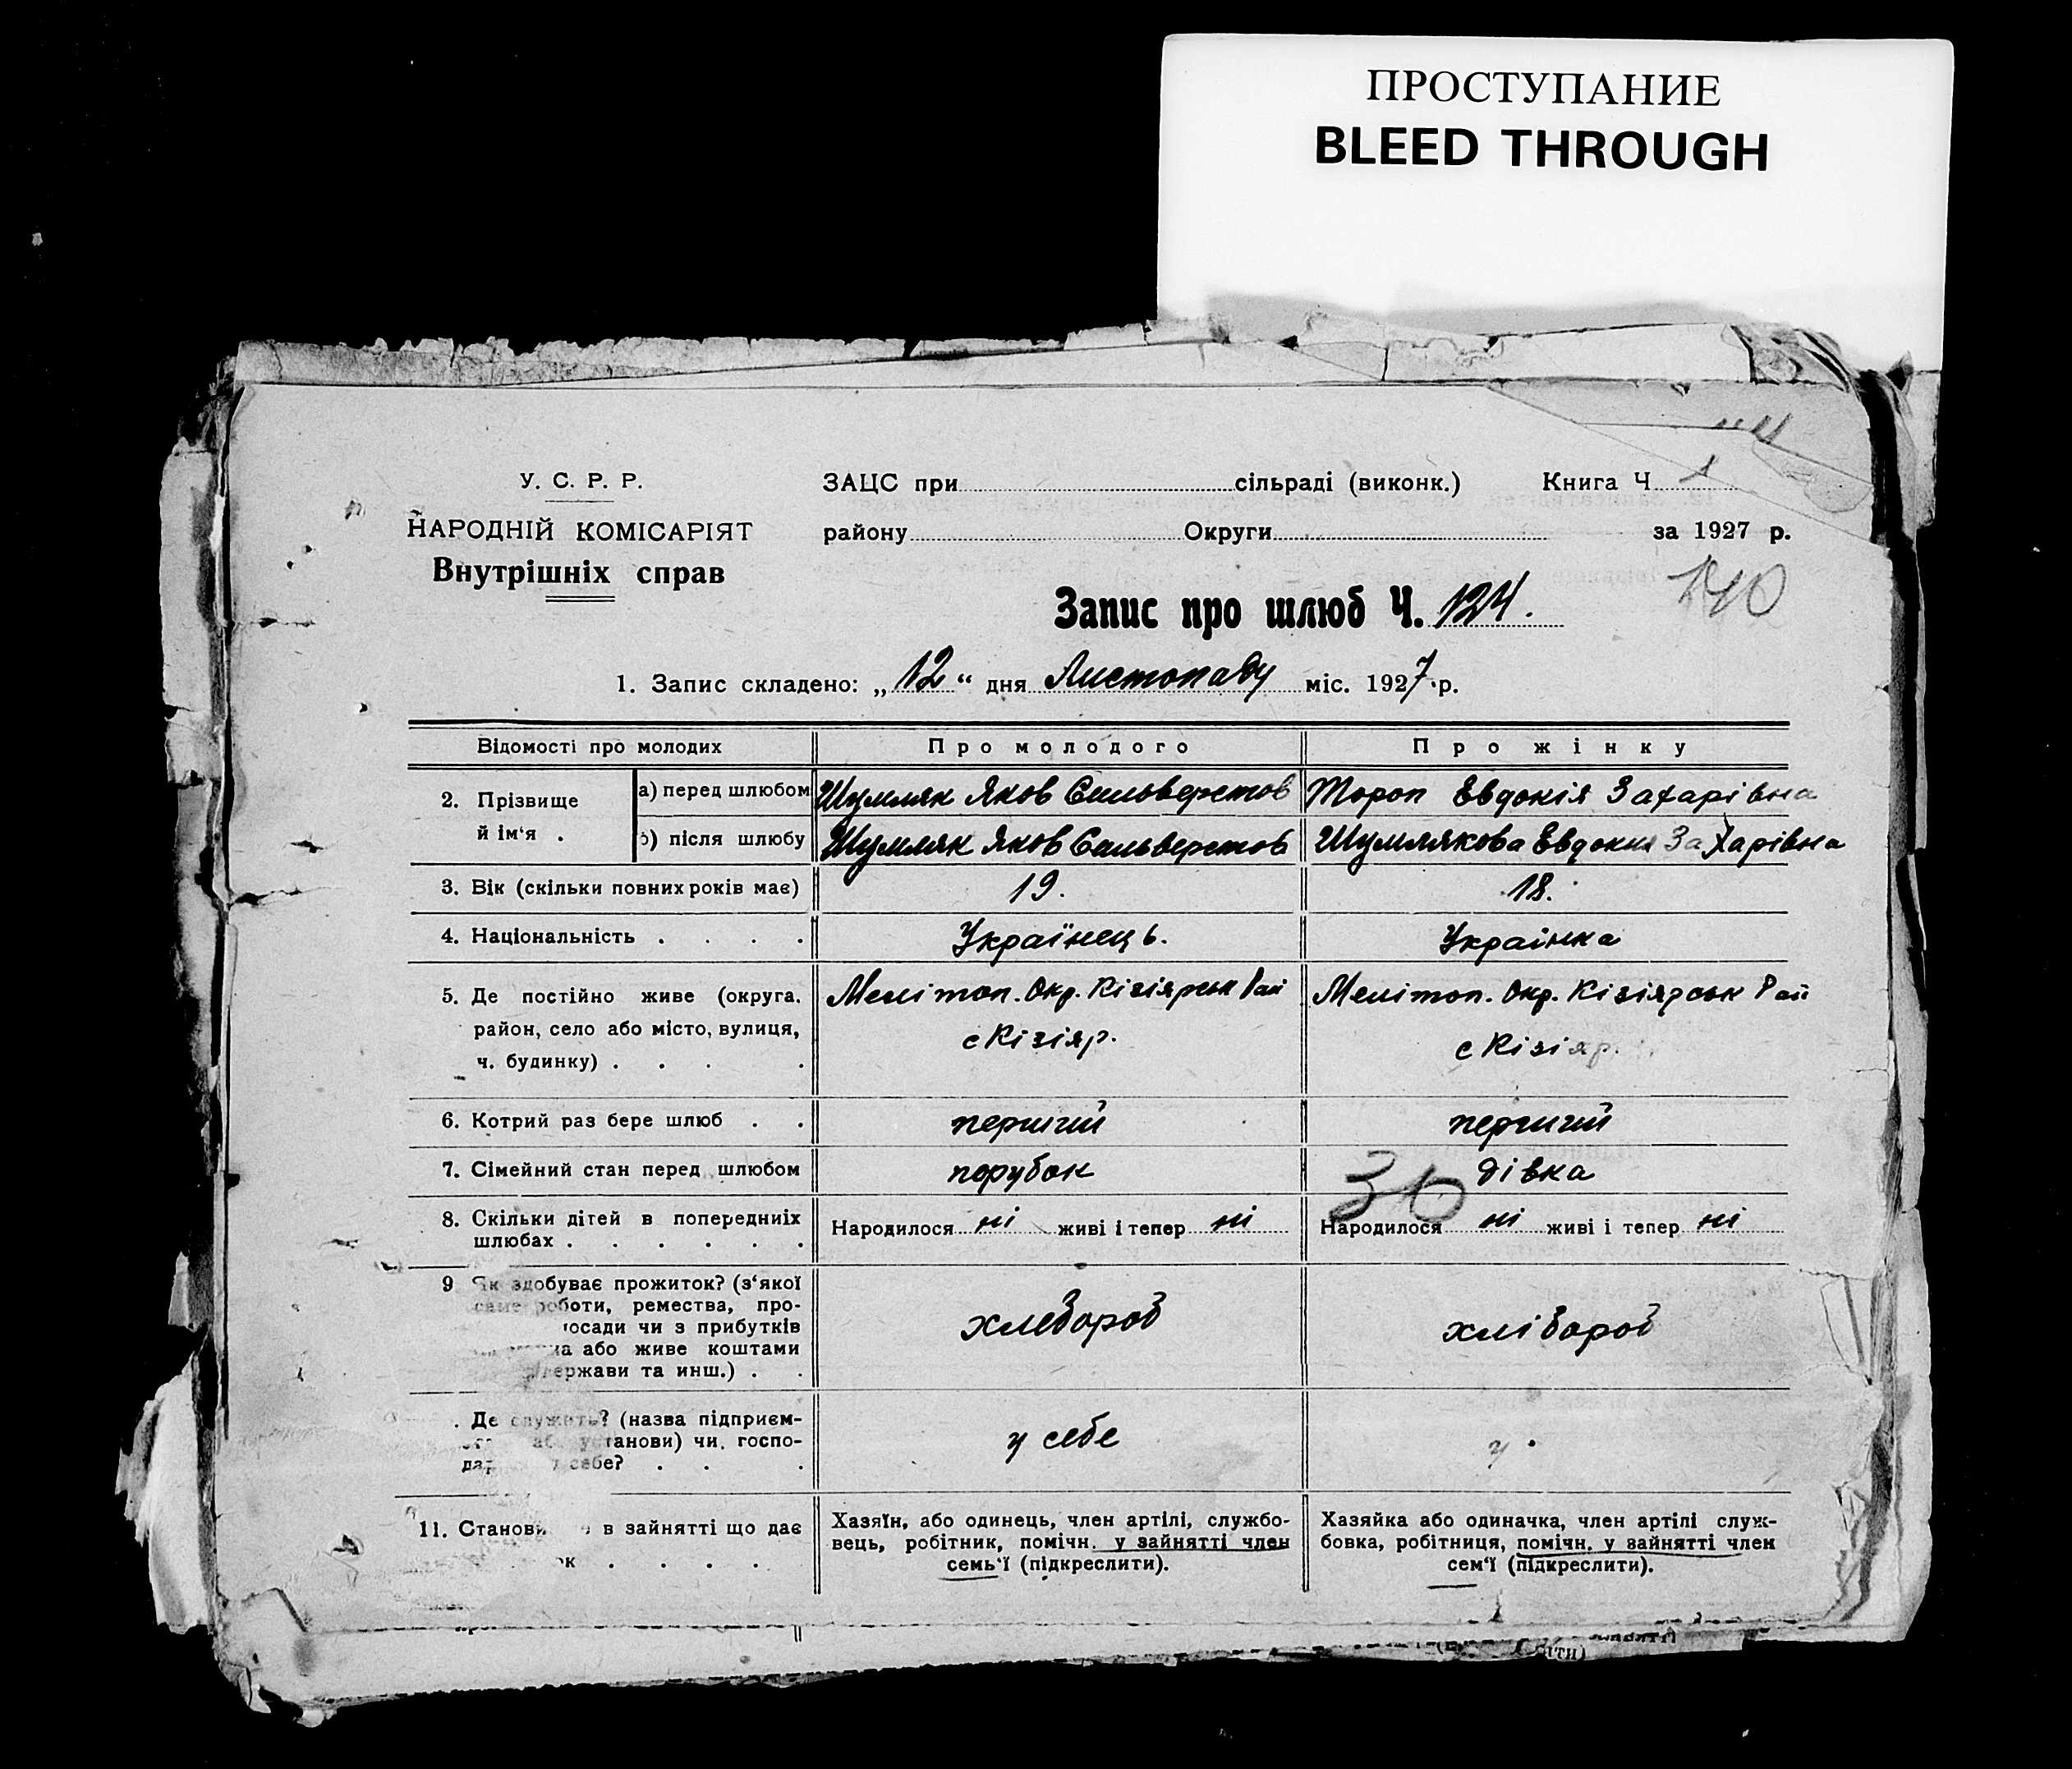 ПРОСТУПАНИЕ
BLEED THROUGH
У. С. Р. Р.
НАРОДНІЙ КОМІСАРІЯТ
Внутрішніх справ
ЗАЦС при сільраді (виконк.) Книга Ч 1
району Округи за 1927 р.
140
Запис про шлюб Ч. 124.
1. Запис складено: „12“ дня Листопаду міс. 1927 р.
Відомості про молодих Про молодого Про жінку
2. Прізвище й ім‘я . а) перед шлюбом Шумляк Яков Сильверстов Тороп Евдокія Захарівна
б) після шлюбу Шумляк Яков Сильверстов Шумлякова Евдокия Захарівна
3. Вік (скільки повних років має) 19. 18.
4. Національність . . . . Українець. Украінка
5. Де постійно живе (округа, Меліт​оп. Окр. Кізіярськ Рай Мелітоп. Окр. Кізіярськ Рай
район, село або місто, вулиця, с Кізіяр. с Кізіяр.
ч. будинку) . . . .
6. Котрий раз бере шлюб . . перший перший
7. Сімейний стан перед шлюбом порубок дівка
30
8. Скільки дітей в попередниіх Народилося ні живі і тепер ні Народилося ні живі і тепер ні
шлюбах . . . . . .
9 Як здобуває прожиток? (з‘якої
саме роботи, ремества, про-
осади чи з прибутків хлебороб хлібороб
на або живе коштами
держави та инш.) . .
. Де служить? (назва підприєм-
або установи) чи. госпо- у себе у
себе? . . .
11. Станови в зайнятті що дає Хазяїн, або одинець, член артілі, службо- Хазяйка або одиначка, член артілі служ-
ок . . . . вець, робітник, помічн. у зайнятті член бовка, робітниця, помічн. у зайнятті член
семь‘ї (підкреслити). сем‘ї (підкреслити).